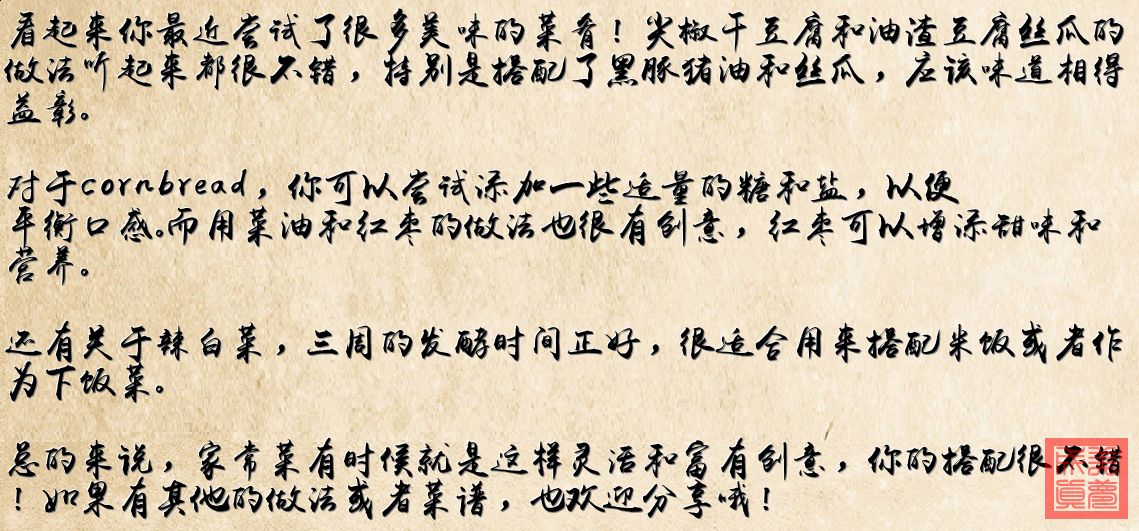 看起来你最近尝试了很多美味的菜肴！尖椒干豆腐和油渣豆腐丝瓜的
做法听起来都很不错，特别是搭配了黑豚猪油和丝瓜，应该味道相得
益彰。
对于cornbread，你可以尝试添加一些适量的糖和盐，以便
平衡口感。而用菜油和红枣的做法也很有创意，红枣可以增添甜味和
营养。
还有关于辣白菜，三周的发酵时间正好，很适合用来搭配米饭或者作
为下饭菜。
总的来说，家常菜有时候就是这样灵活和富有创意，你的搭配很不错
！如果有其他的做法或者菜谱，也欢迎分享哦！